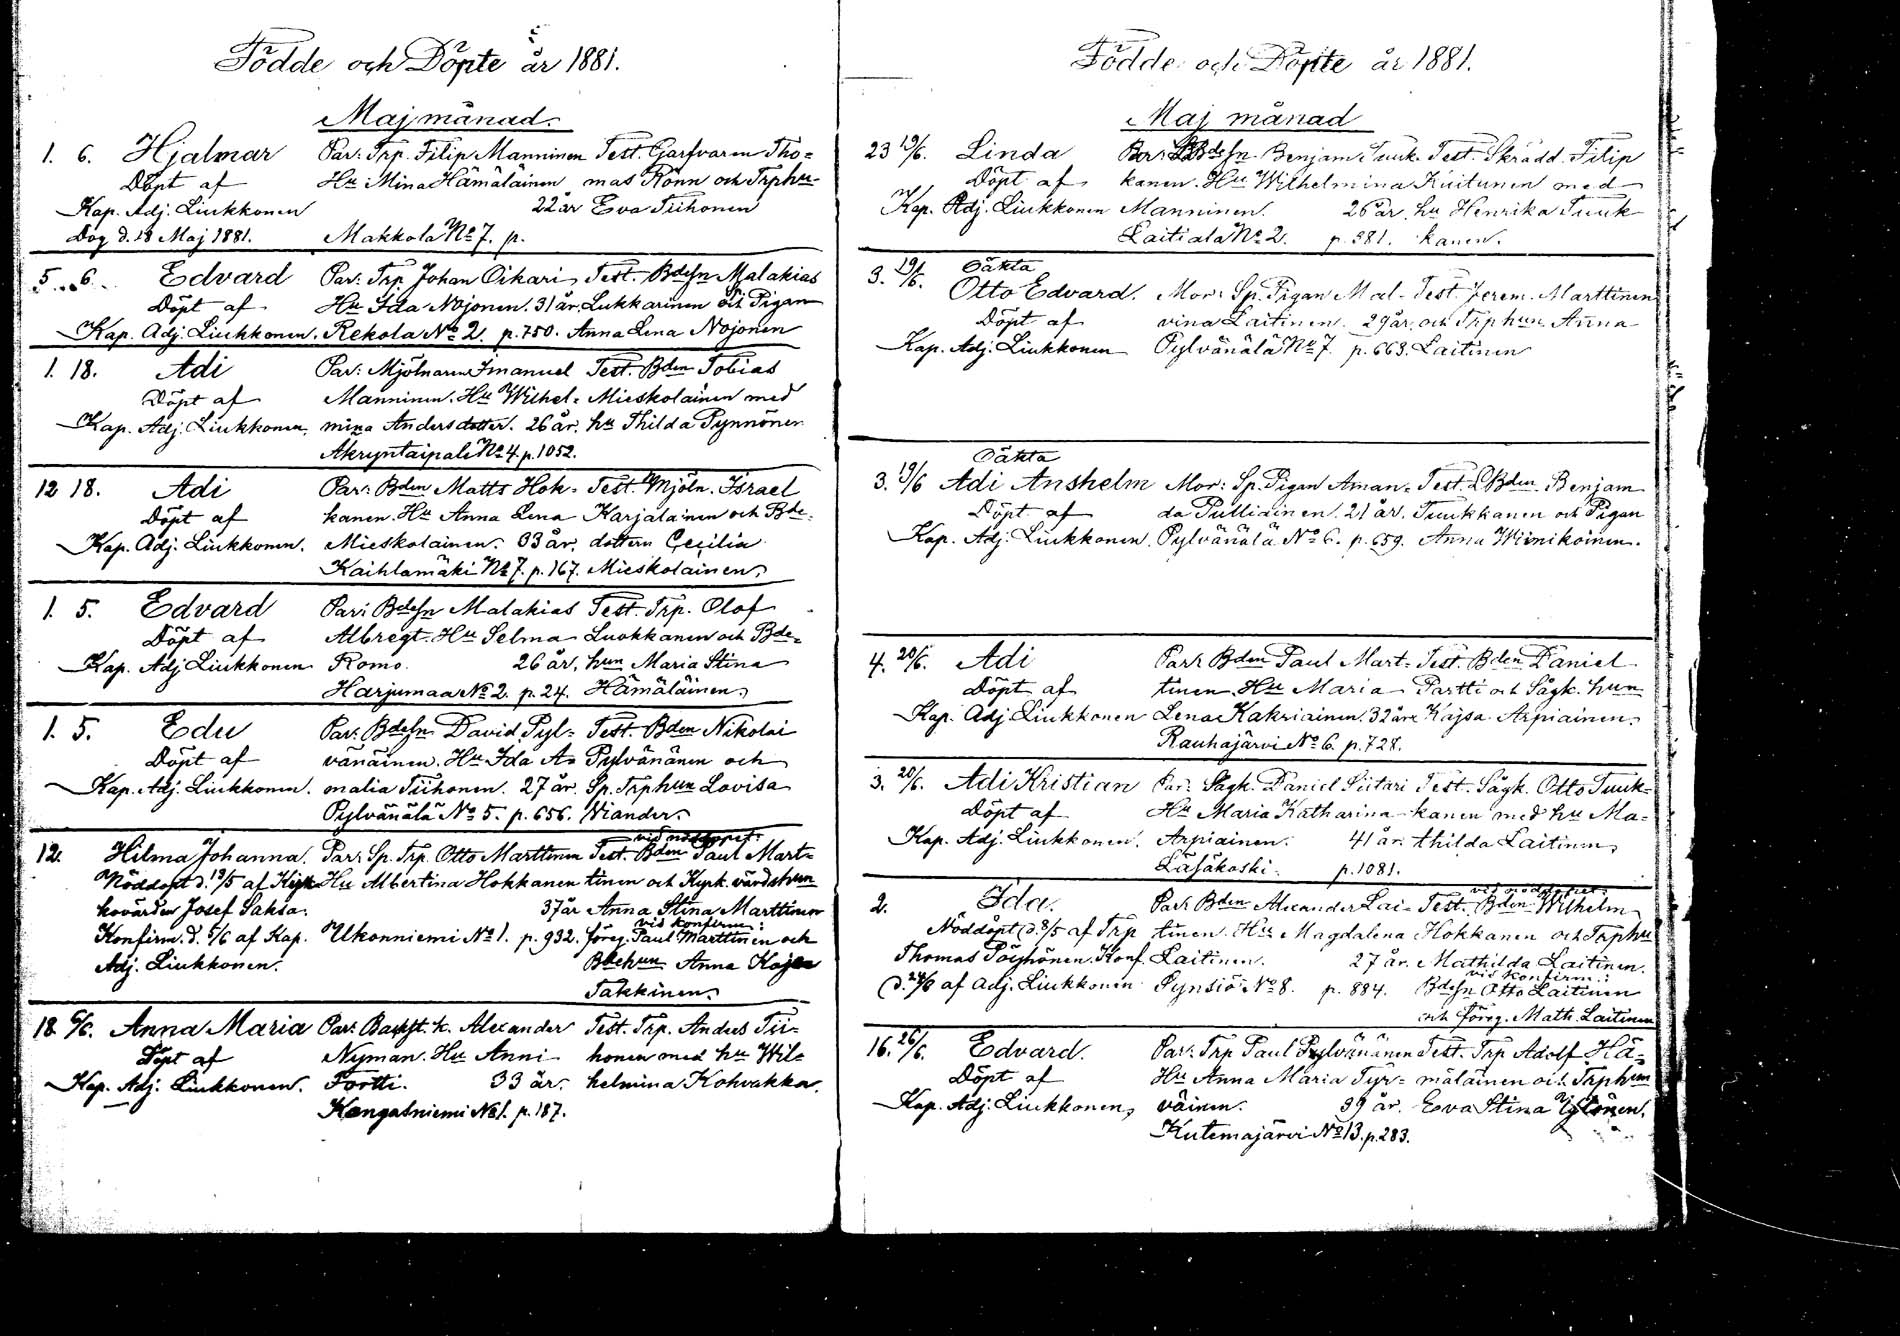 Födde och Döpte år 1881.
Maj månad.
1. 6. Hjalmar Par: Trp. Filip Manninen Test. Garfvaren Tho=
Döpt af Hu Mina Hämäläinen mas Rönn och Trphu
Kap. Adj. Liukkonen 22 år Eva Tiihonen
Dog d. 18 Maj 1881. Makkola No 7. p.
5. 6. Edvard Par: Trp. Johan Oikari Test. Bdesn Malakias
Döpt af Hu Ida Nojonen. 31 år. Lukkarinen och Pigan
Kap. Adj. Liukkonen. Rekola No 2. p. 750. Anna Lena Nojonen
1. 18. Adi Par: Mjölnaren Imanuel Test. Bden Tobias
Döpt af Manninen. Hu Wilhel= Mieskolainen med
Kap. Adj. Liukkonen. mina Andersdotter. 26 år. hu Thilda Pynnönen
No 4. p. 1052.
12 18. Adi Par: Bden Matts Hok= Test. Mjöln. Israel
Döpt af kanen. Hu Anna Lena Karjalainen och Bde=
Kap. Adj. Liukkonen. Mieskolainen. 33 år. dottern Cecilia
Kaihlamäki No 7. p. 167. Mieskolainen.
1. 5. Edvard Par: Bdesn Malakias Test. Trp. Olof
Döpt af Albregt. Hu Selma Luokkanen och Bde=
Kap. Adj Liukkonen Romo. 26 år. hun Maria Stina
Harjumaa No 2. p. 24. Hämäläinen.
1. 5. Edu Par. Bdesn David Pyl= Test. Bden Nikolai
Döpt af vänäinen. Hu Ida A= Pylvänänen och
Kap. Adj. Liukkonen. malia Tiihonen. 27 år. Sp. Trphun Lovisa
Pylvänälä No 5. p. 656. Niander.
vid nöddopet:
12. Hilma Johanna. Par: Sp. Trp. Otto Marttinen Test. Bden Paul Mart=
Nöddöpt d. 13/5 af Kyrk Hu Albertina Hokkanen tinen och Kyrk.värdshun
kovärden Josef Saksa. 37 år Anna Stina Marttinen
vid konfirm:
Konfirm. d. 5/6 af Kap. Ukonniemi No 1. p. 932. föreg. Paul Marttinen och
Adj. Liukkonen. Bdehun Anna Kajsa
Takkinen.
18. 6/6. Anna Maria Par: Alexander Test. Trp. Anders Tii=
Döpt af Nyman. Hu Anni honen med hu Wil=
Kap. Adj. Liukkonen. Fortti. 33 år. helmina Kohvakka.
Kangasniemi No 1. p. 187.
Födde och Döpte år 1881.
Maj månad
23 19/6. Linda Benjam Tuuk= Test. Skrädd. Filip
Döpt af kanen. Hu Wilhelmina Kuitunen med
Kap. Adj. Liukkonen Manninen. 26 år. hu Henrika Tuuk
Laitiala No 2. p. 381. kanen.
Oäkta
3. 19/6. Otto Edvard. Mor: Sp. Pigan Mal= Test. Jerem. Marttinen
Döpt af vina Laitinen. 29 år. och Trphun Anna
Kap. Adj. Liukkonen Pylvänälä No 7. p. 663. Laitinen
Oäkta
3. 19/6 Adi Anshelm Mor: Sp. Pigan Aman= Test. LBden. Benjam
Döpt af da Pulliainen. 21 år. Tuukkanen och Pigan
Kap. Adj. Liukkonen. Pylvänälä No 6. p. 659. Anna Wiinikoinen.
4. 20/6. Adi Par: Bden Paul Mart= Test. Bden Daniel
Döpt af tinen. Hu Maria Partti och Sågk. hun
Kap. Adj Liukkonen Lena Kakriainen. 32 år Kajsa Arpiainen.
Rauhajärvi No 6. p. 728.
3. 20/6. Adi Kristian Par: Sågk. Daniel Siitari Test. Sågk. Otto Tuuk=
Döpt af Hu Maria Katharina kanen med hu Ma=
Kap. Adj. Liukkonen. Arpiainen. 41 år. thilda Laitinen,
Läsäkoski. p. 1081.
vid nöddopet:
2. Ida. Par: Bden Alexander Lai= Test. Bden Wilhelm
Nöddöpt d. 8/5 af Trp tinen. Hu Magdalena Hokkanen och Trphu
Thomas Pöyhönen. Konf. Laitinen. 27 år. Mathilda Laitinen.
vid konfirm:
af Adj. Liukkonen Synsiö No 8. p. 884. Bdesn Otto Laitinen
och föreg. Math. Laitinen
16. 26/6. Edvard. Par: Trp Paul Pylvänänen Test. Trp Adolf Hä=
Döpt af Hu Anna Maria Tyr= mäläinen och Trphun
Kap. Adj. Liukkonen, väinen. 39 år. Eva Stina Ylönen.
Kutemajärvi No 13. p. 283.